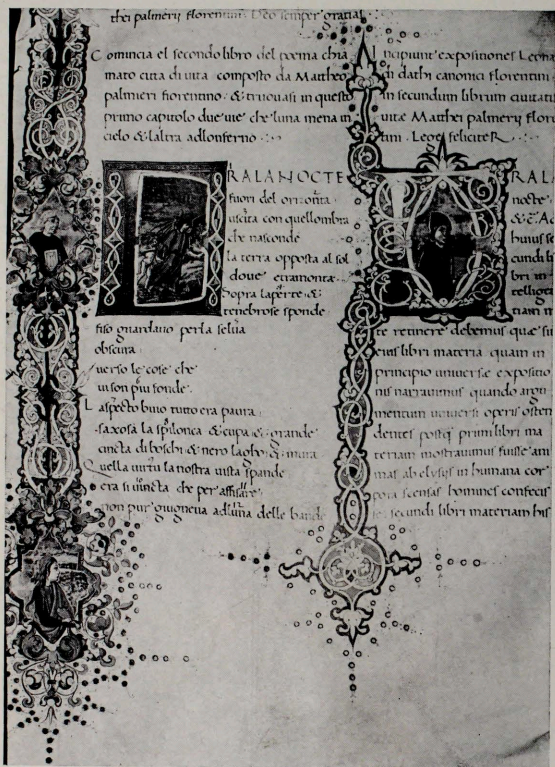 thei palmerij florentini. Deo semper gratias
Comincia el secondo libro del poema chia
mato citta di uita composto da Mattheo
palmieri fiorentino. & truouasi in questo
primo capitolo due uie che luna mena in
cielo & laltra adlonferno
ERA LA NOCTE
fuori del orizonta
uscita con quellombra
che nasconde
la terra opposta al sol
doue tramonta.
Sopra laperte &
tenebrose sponde
fiso guardauo per la selua
obscura
uerso le cose che
uison piu fonde.
L aspecto buio tutto era paura
saxosa la spilonca & cupa & grande
cincta di boschi & nero lagho & mura
Quella uirtu la nostra uista spande
era si uincta che per affisare
non pur giugneua adluna delle bande
Incipiunt expositiones Leona
di dathi canonici florentini
in secundum librum ciuitatis
uitæ Matthei palmerij flore
tini. Lege feliciter.
ERA LA
nocte
& c̄. Ad
huius se
cundi li
bri in
tellige
tiam
te retinere debemus quæ sit
eius libri materia quam in
principio uniuersæ expositio
nis narrauimus quando argu
mentum uniuersi operis osten
dentes postq̄ primi libri ma
teriam mostrauimus fuisse ani
mas ab elysijs in humana cor
pora scensas homines confecis
se secundi libri materiam his